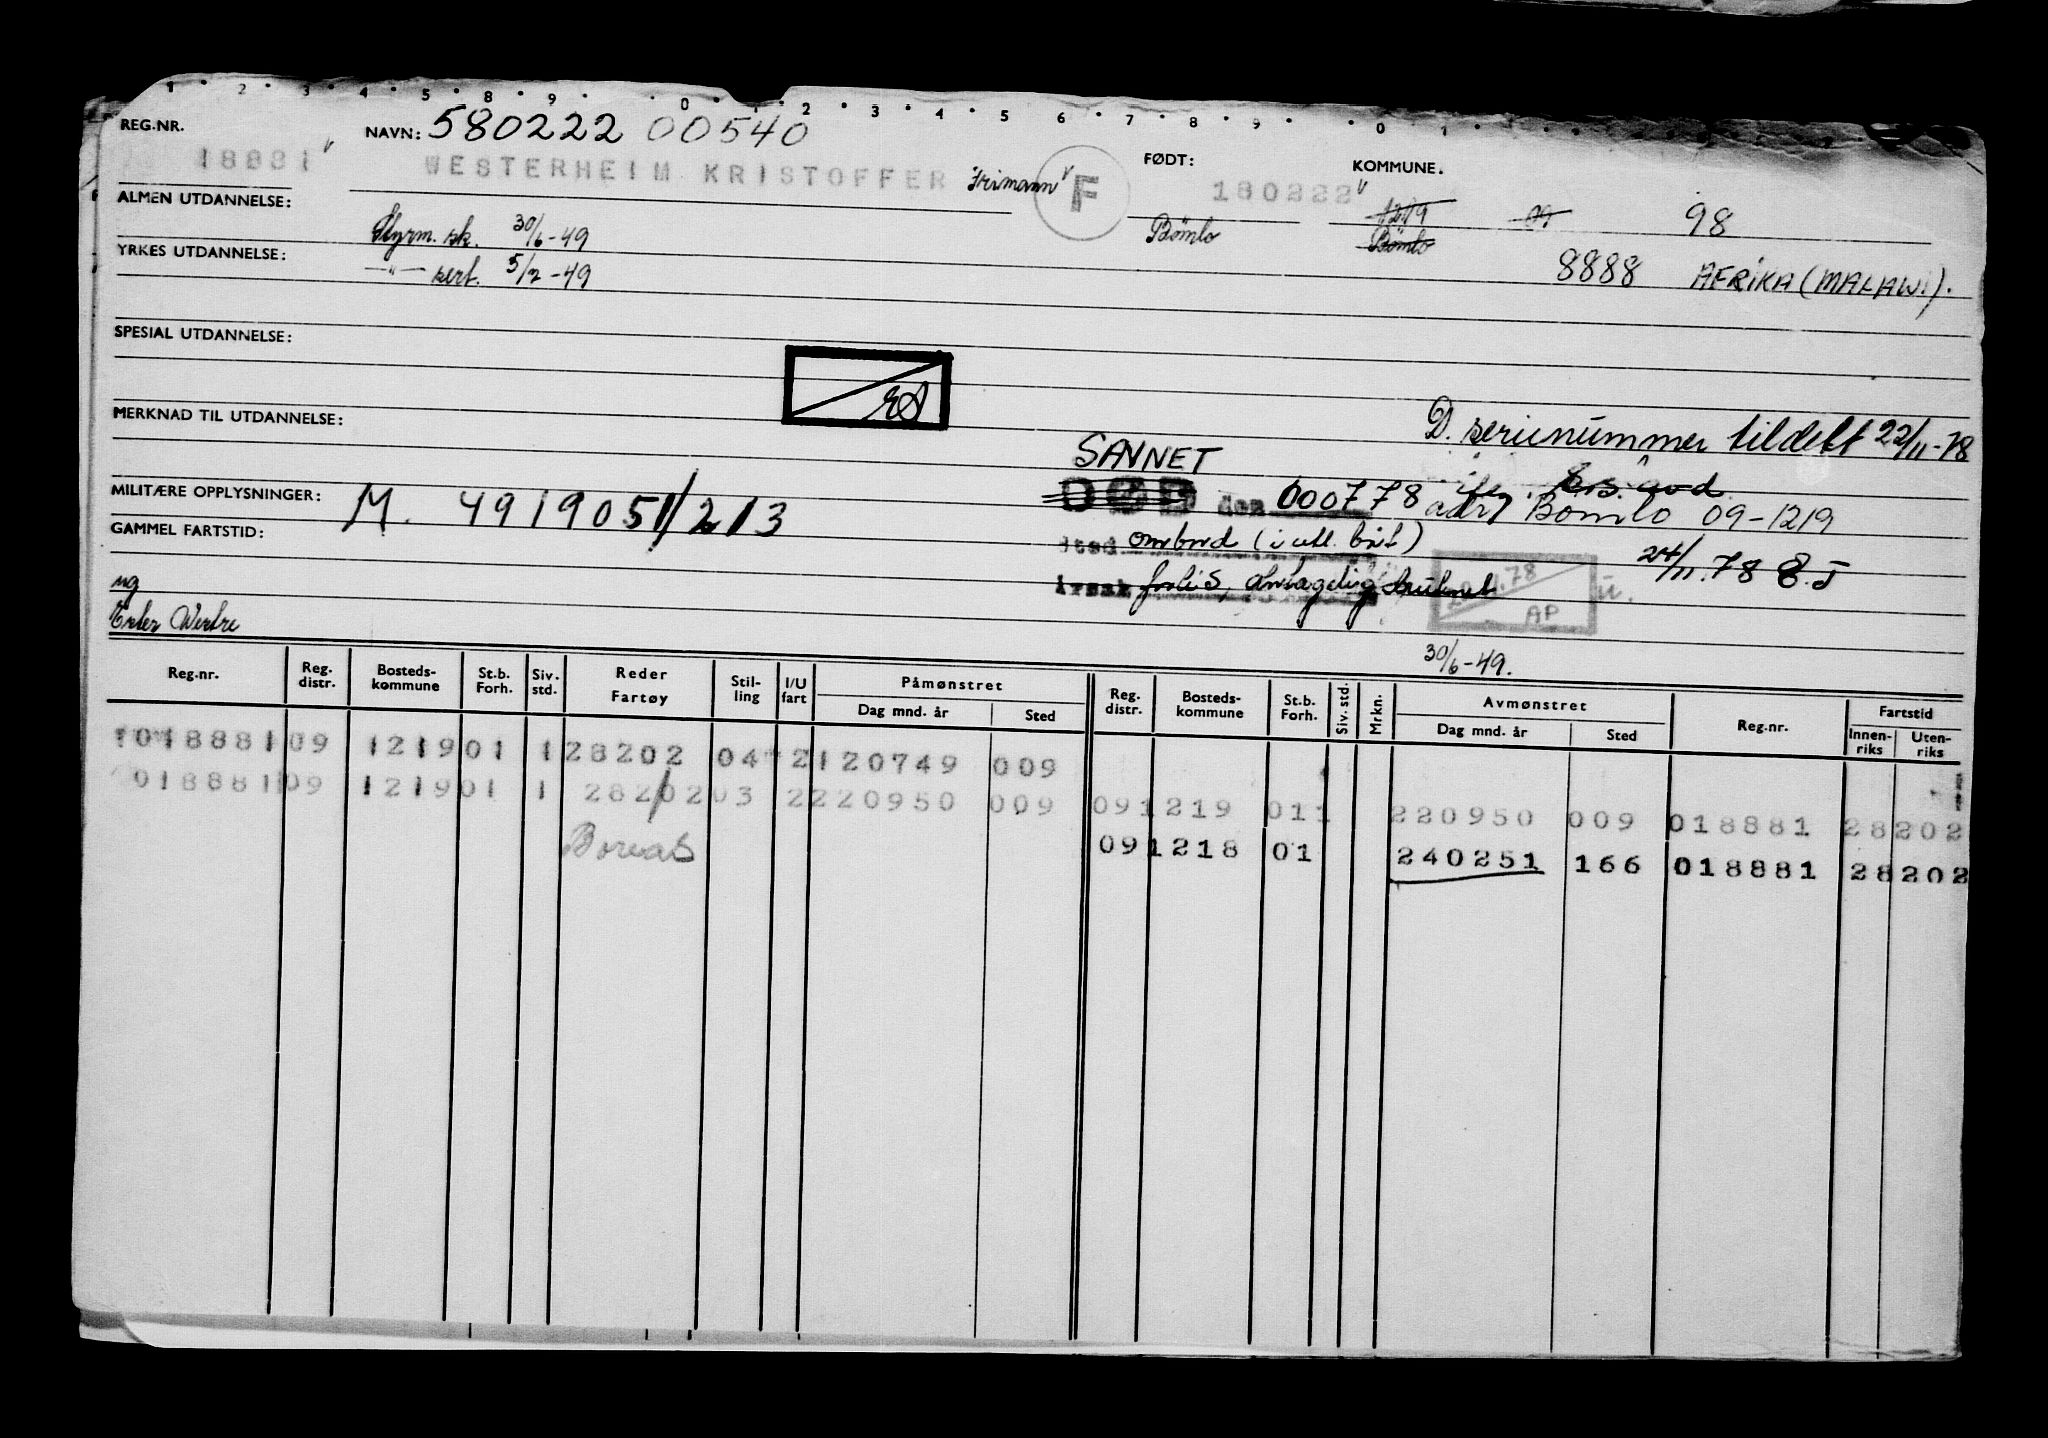 1 · 2 · 3 · 4 · 5 · 8 · 9 · 0 · 1 · 2 · 3 · 4 · 5 · 6 · 7 · 8 · 9 · 0 · 1
REG.NR. NAVN: 580222 00540 FØDT: KOMMUNE.
18881 WESTERHEIM KRISTOFFER Frimann F 180222 1219 09 98
ALMEN UTDANNELSE: Styrm. sk. 30/6-49 Bömlo Bömlo
YRKES UTDANNELSE: —"— sert. 5/2-49 8888 AFRIKA (MALAWI).
SPESIAL UTDANNELSE:
MERKNAD TIL UTDANNELSE: D. serienummer tildelt 22/11-78
SAVNET
MILITÆRE OPPLYSNINGER: M. 4919051/213 DØD den 000778 adr. Bömlo 09-1219
GAMMEL FARTSTID: Sted ombord (i utl. båt) 24/11.78
Årsak forlis, antagelig druknet .78 AP
ug
Enker Westre
30/6-49.
Reg.nr. Reg. distr. Bosteds-kommune St.b. Forh. Siv. std. Reder Fartøy Stil-ling I/U fart Påmønstret Dag mnd. år Sted Reg. distr. Bosteds-kommune St.b. Forh. Siv. std. Mrkn. Avmønstret Dag mnd. år Sted Reg.nr. Fartstid Innen-riks Uten-riks
018881 09 1219 01 1 28202 04 2 120749 009
018881 09 1219 01 1 28202 03 2 220950 009 09 1219 01 1 220950 009 018881 28202
Boreas 09 1218 01 240251 166 018881 28202